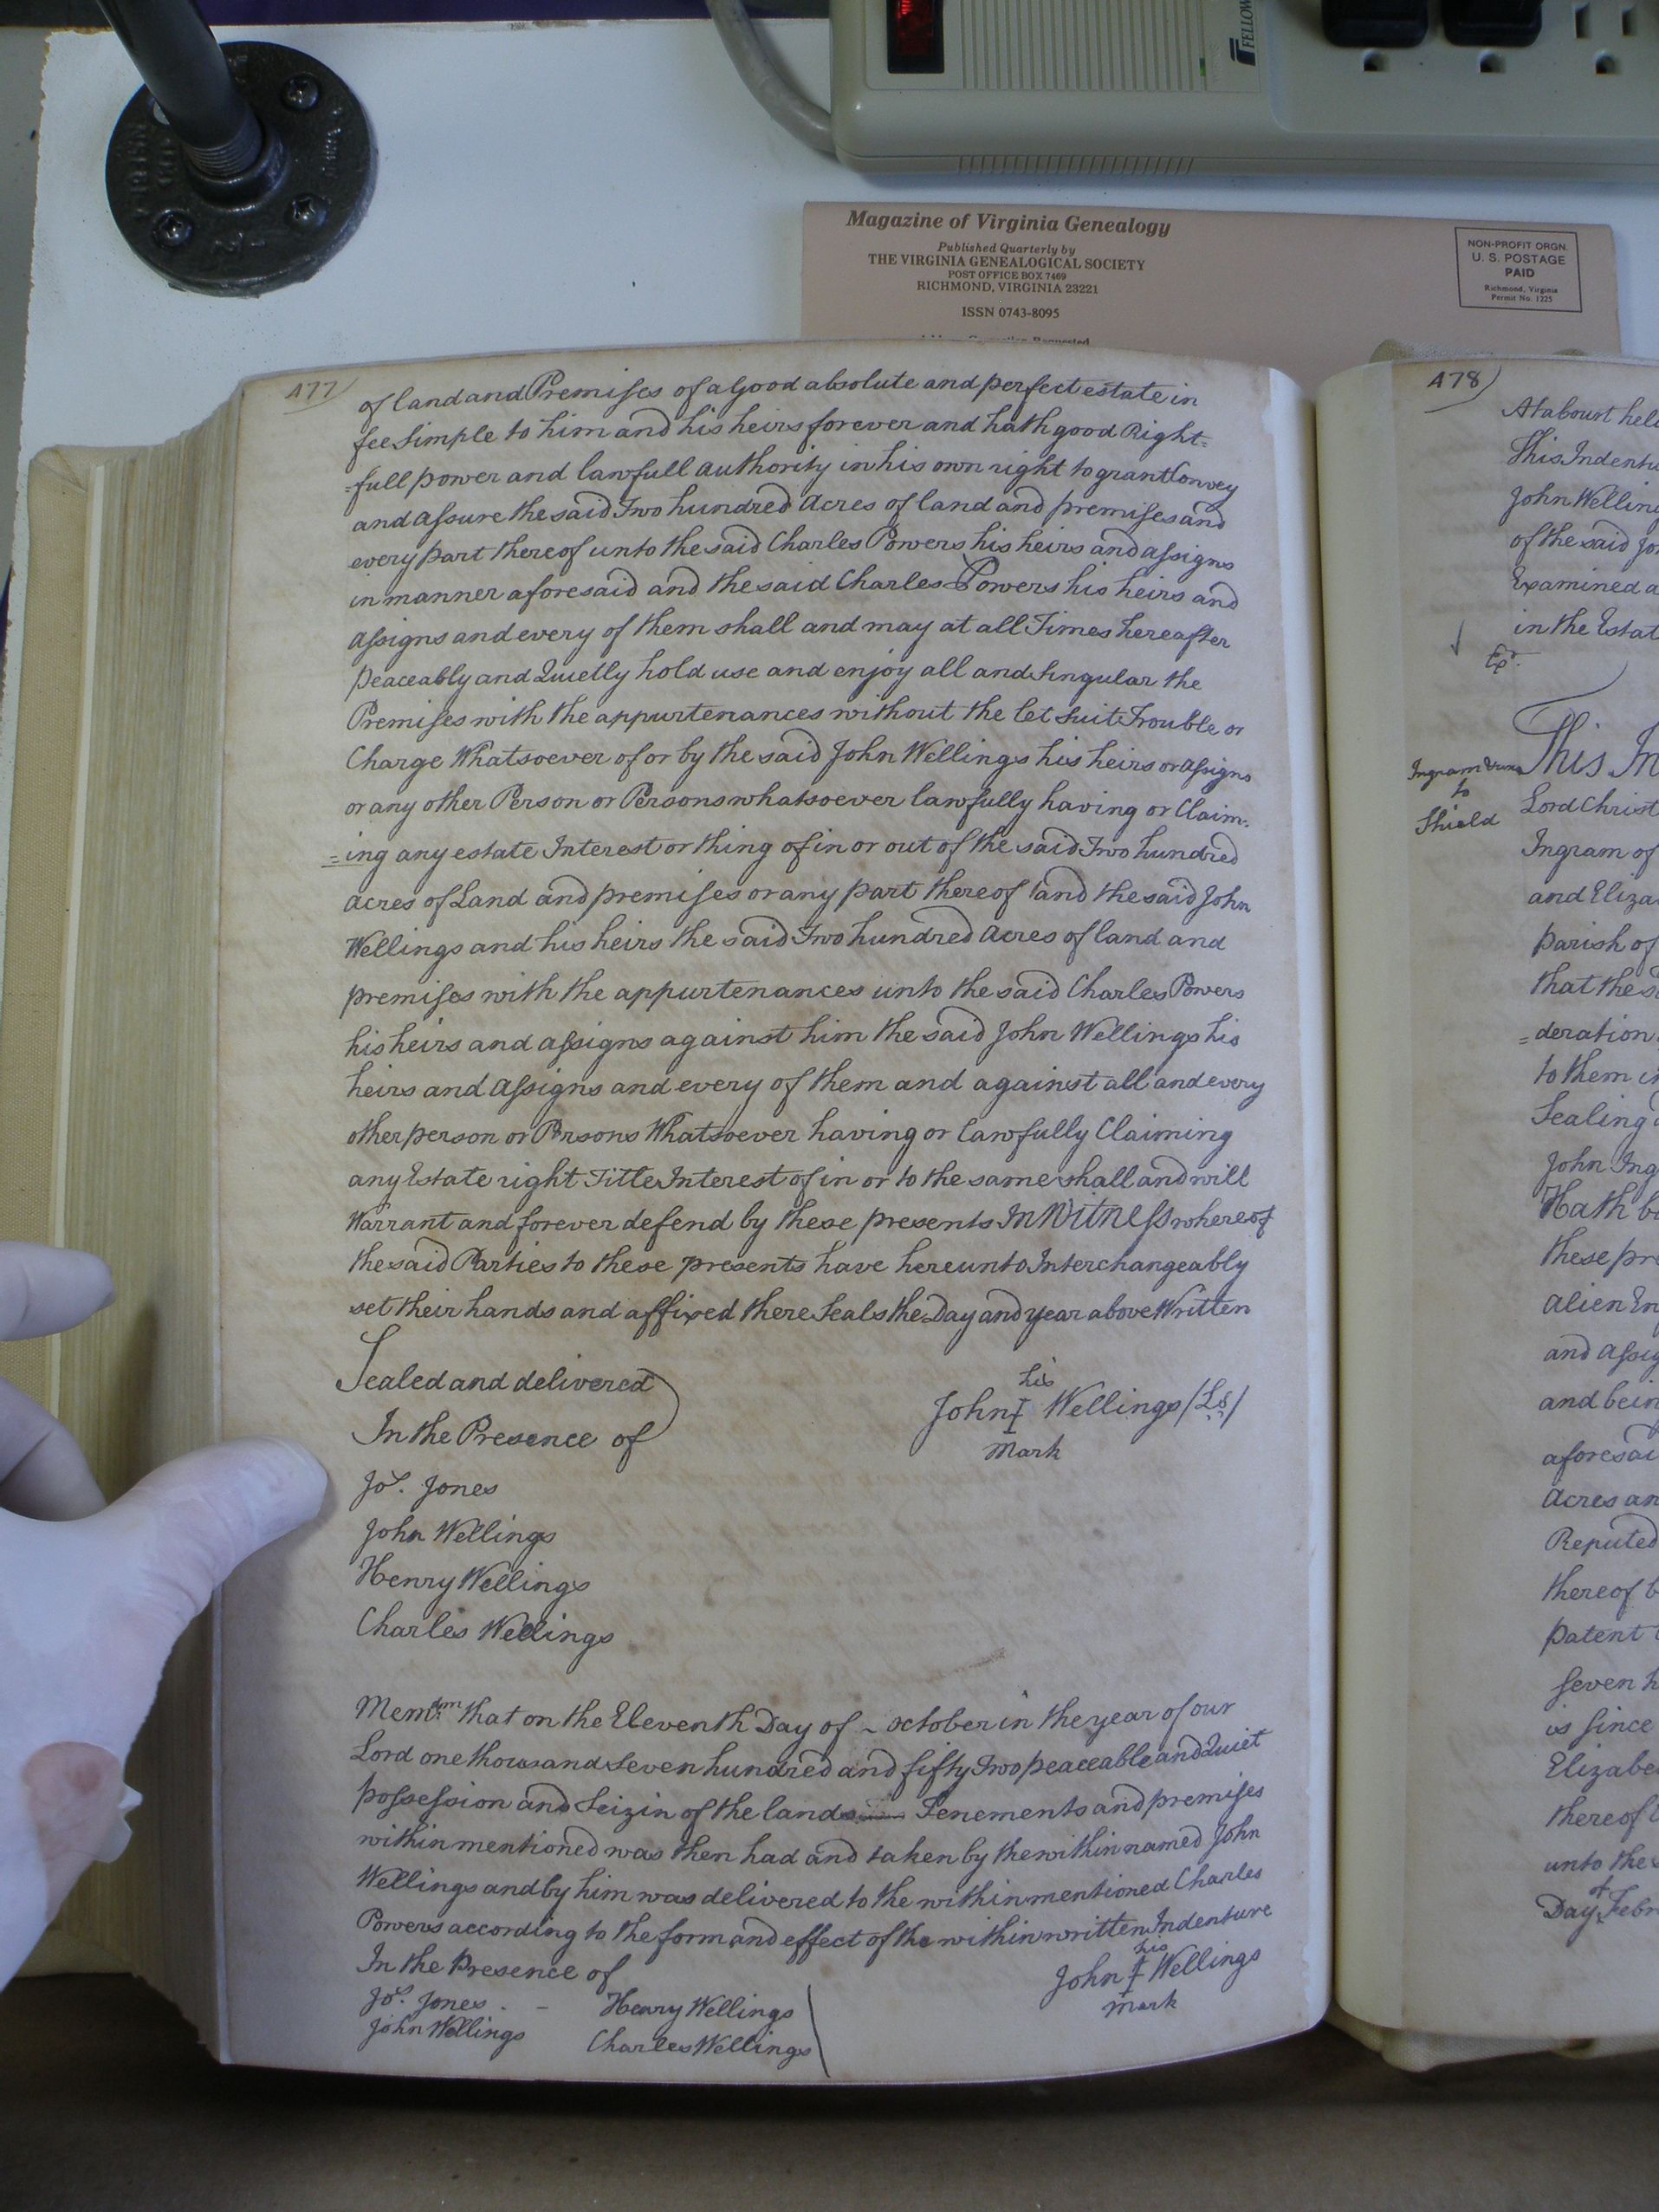 FELLOW
Magazine of Virginia Genealogy
Published Quarterly by
THE VIRGINIA GENEALOGICAL SOCIETY
POST OFFICE BOX 7469
RICHMOND, VIRGINIA 23221
ISSN 0743-8095
NON-PROFIT ORGN.
U. S. POSTAGE
PAID
Richmond, Virginia
Permit No. 1225
477
of land and Premises of a Good absolute and perfect estate in
fee Simple to him and his heirs forever and hath good Right-
=full power and lawfull authority in his own right to grant Convey
and assure the said Two hundred Acres of land and premises and
every part thereof unto the said Charles Powers his heirs and assigns
in manner aforesaid and the said Charles Powers his heirs and
assigns and every of them shall and may at all Times hereafter
peaceably and Quietly hold use and enjoy all and Singular the
Premises with the appurtenances without the let Suit Trouble or
Charge Whatsoever of or by the said John Wellings his heirs or assigns
or any other Person or Persons whatsoever lawfully having or Claim=
=ing any estate Interest or thing of in or out of the said Two hundred
acres of Land and premises or any part thereof and the said John
Wellings and his heirs the said Two hundred Acres of land and
premises with the appurtenances unto the said Charles Powers
his heirs and assigns against him the said John Wellings his
heirs and assigns and every of them and against all and every
other person or Persons Whatsoever having or Lawfully Claiming
any Estate right Title Interest of in or to the same shall and will
Warrant and forever defend by these presents In Witness whereof
the said Parties to these presents have hereunto Interchangeably
set their hands and affixed there Seals the Day and year above Written
Sealed and delivered
In the Presence of
his
John I Wellings (Ls)
mark
Jos. Jones
John Wellings
Henry Wellings
Charles Wellings
Memdm. that on the Eleventh Day of ~ october in the year of our
Lord one thousand Seven hundred and fifty Two peaceable and Quiet
possession and Seizin of the lands Tenements and premises
within mentioned was then had and taken by the within named John
Wellings and by him was delivered to the within mentioned Charles
Powers according to the form and effect of the within written Indenture
In the Presence of
his
John I Wellings
mark
Jos. Jones - Henry Wellings
John Wellings Charles Wellings
478
At a Court held
This Indentu
John Welling
of the said Jo
Examined a
in the Estat
Ingram
to
Shield
This In
Lord Christ
Ingram of
and Eliza
Parish of
that the s
=deration
to them in
Sealing
John Ing
Hath b
these pre
alien En
and assig
and bein
aforesai
Acres an
Reputed
thereof b
patent
Seven h
is since
Elizabe
thereof
unto the s
Day of Febr